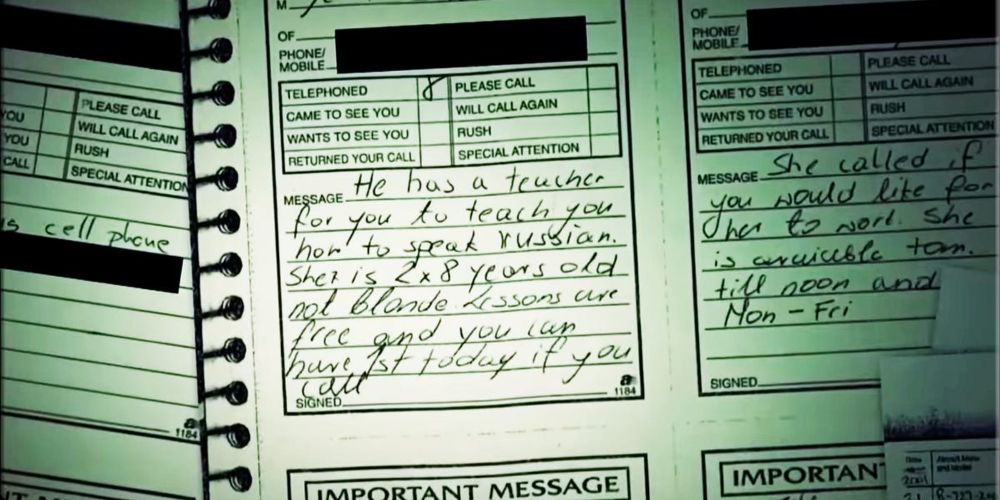 M
OF
PHONE/
MOBILE
TELEPHONED PLEASE CALL
CAME TO SEE YOU WILL CALL AGAIN
WANTS TO SEE YOU RUSH
RETURNED YOUR CALL SPECIAL ATTENTION
MESSAGE He has a teacher
for you to teach you
how to speak russian.
She is 2x8 years old
not blonde. Lessons are
free and you can
have 1st today if you
call
SIGNED
1184
IMPORTANT MESSAGE
YOU PLEASE CALL
YOU WILL CALL AGAIN
CALL RUSH
SPECIAL ATTENTION
cell phone
1184
OF
PHONE/
MOBILE
TELEPHONED PLEASE CALL
CAME TO SEE YOU WILL CALL AGAIN
WANTS TO SEE YOU RUSH
RETURNED YOUR CALL SPECIAL ATTENTION
MESSAGE She called if
you would like for
her to work. She
is tom.
till noon and
Mon - Fri
SIGNED
IMPORTANT